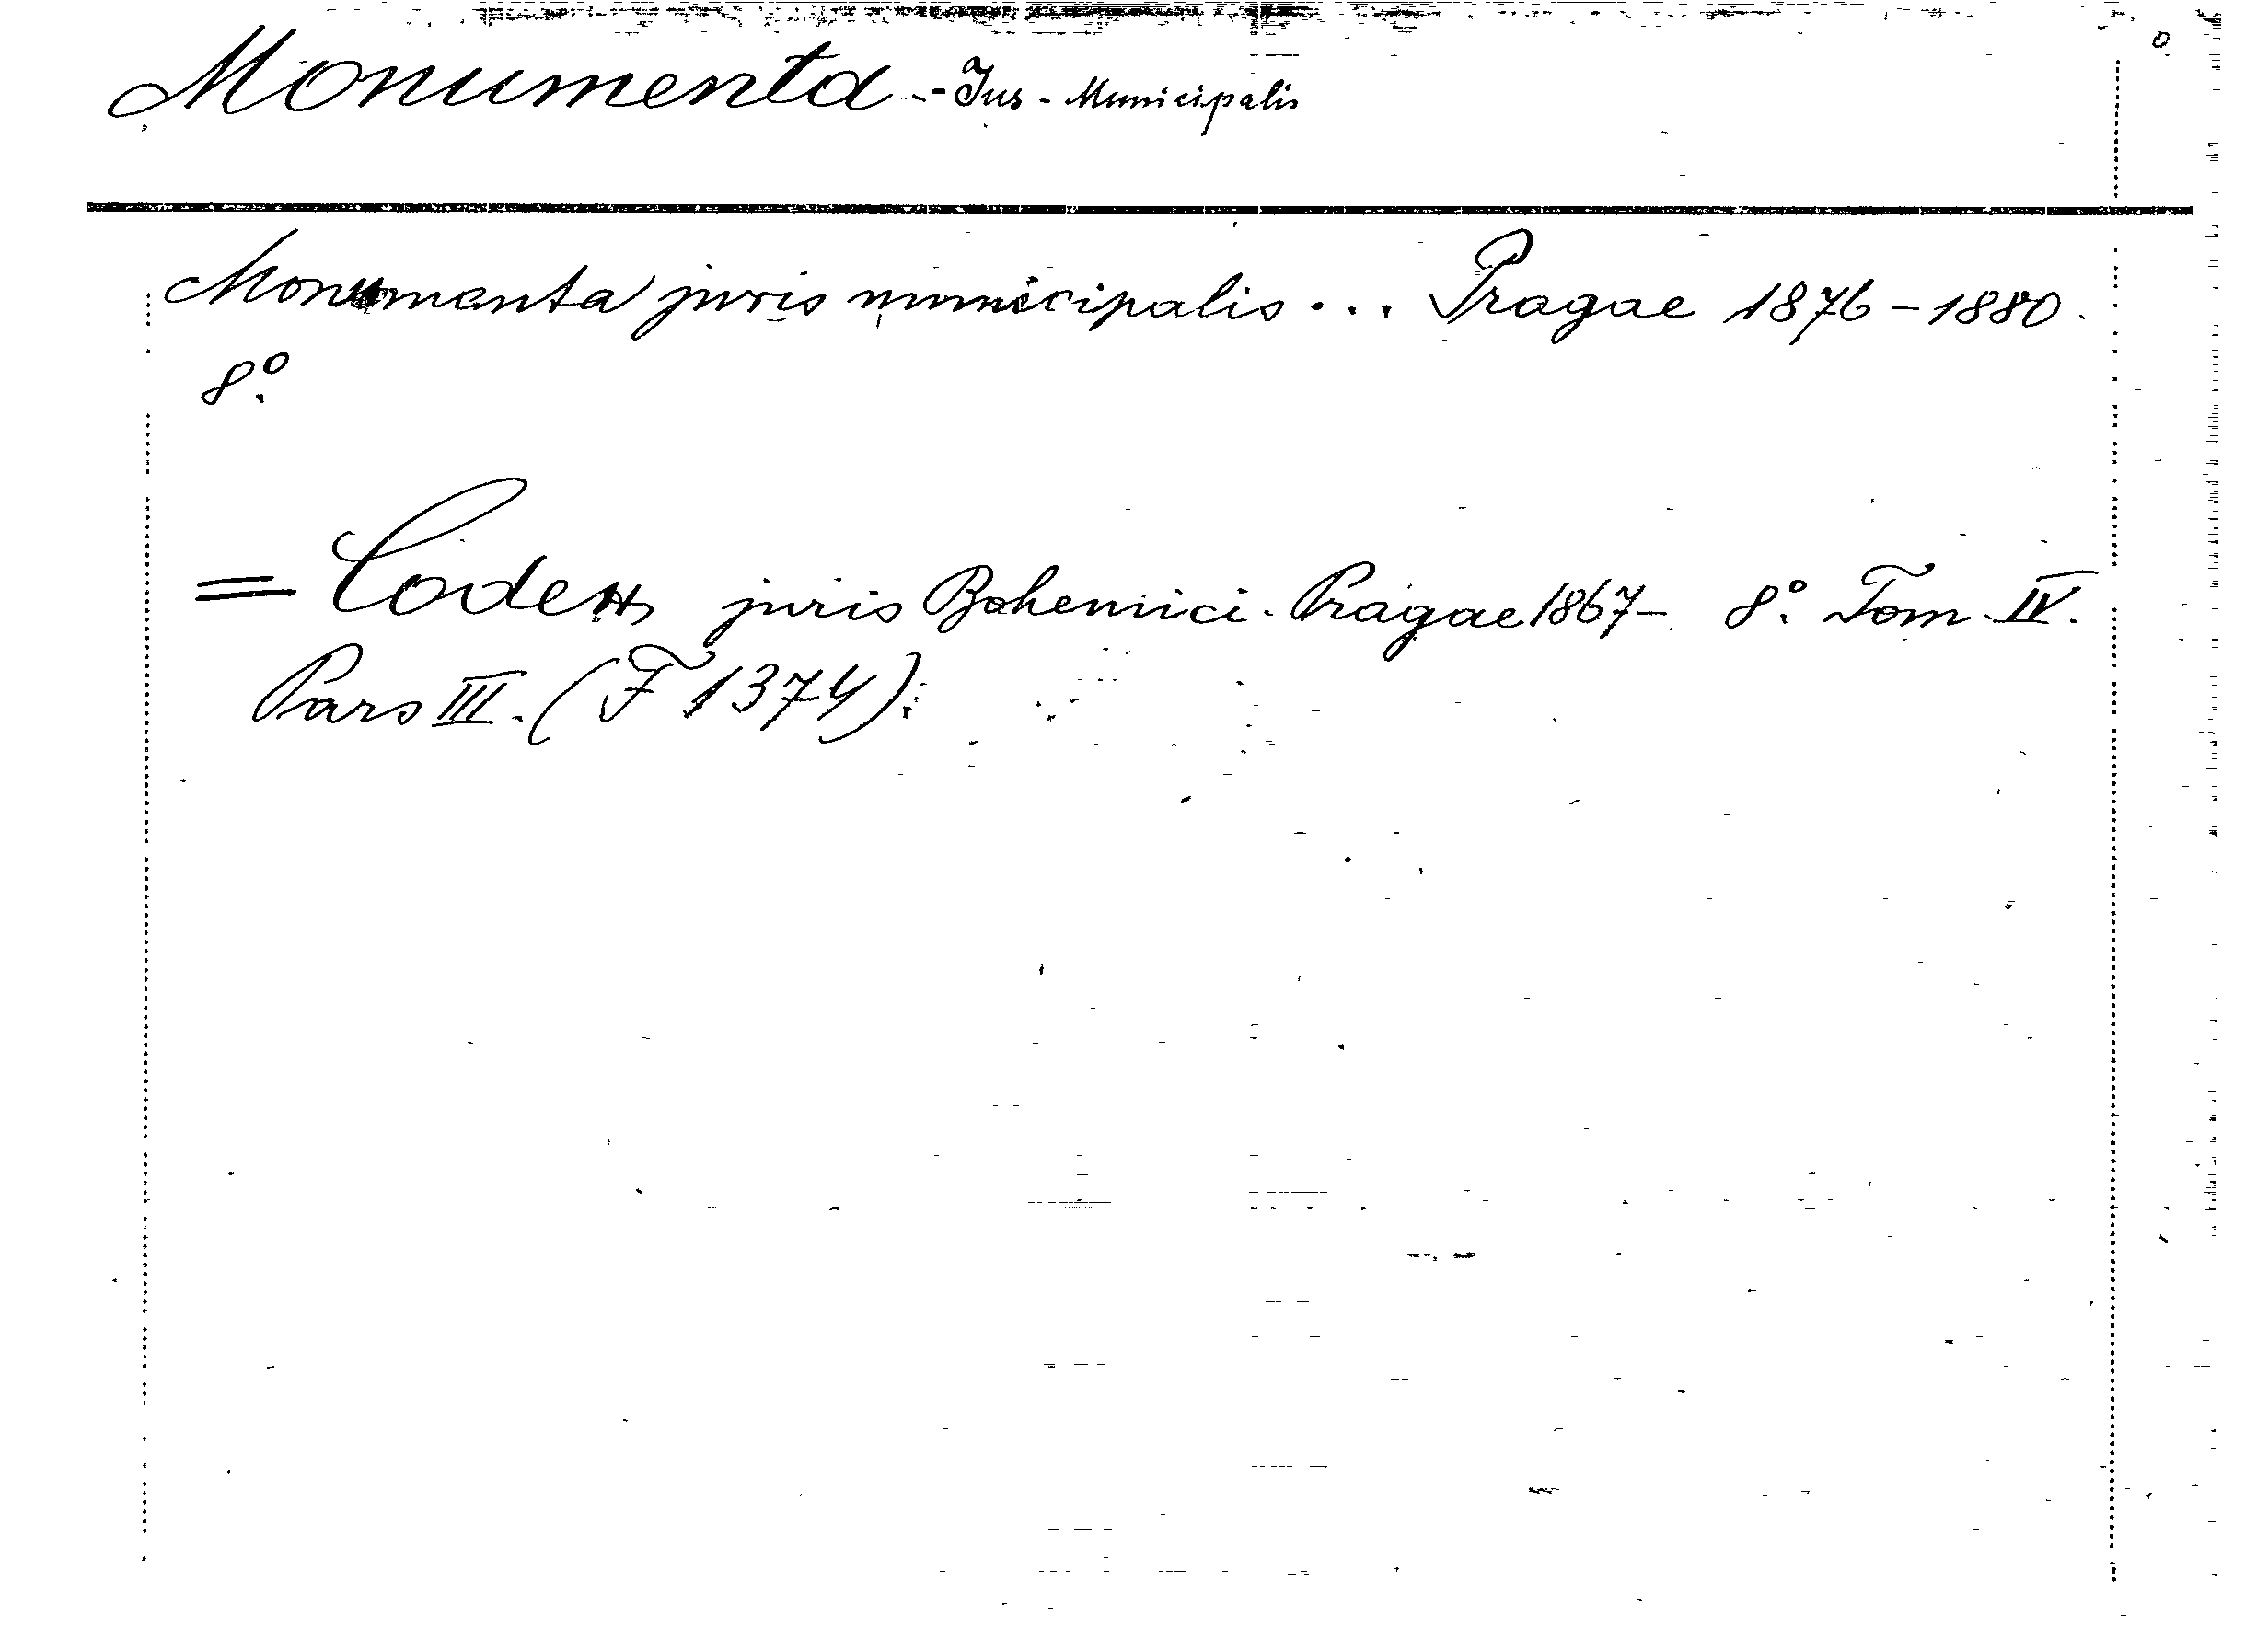 Monumenta - Jus - Municipalis
Monumenta juris municipalis... Pragae 1876-1880.
8º.
= Codex juris Bohemici. Pragae 1867- 8º. Tom. IV.
Pars III. (F 1374).